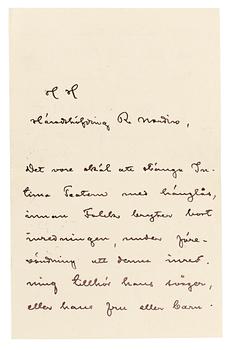 H H
Häradshöfding R. Nordin,
Det vore skäl att stänga In-
tima Teatern med hänglås,
innan Falck bryter bort
inredningen, under före-
vändning att denna inred-
ning tillhör hans svåger,
eller hans fru eller barn.